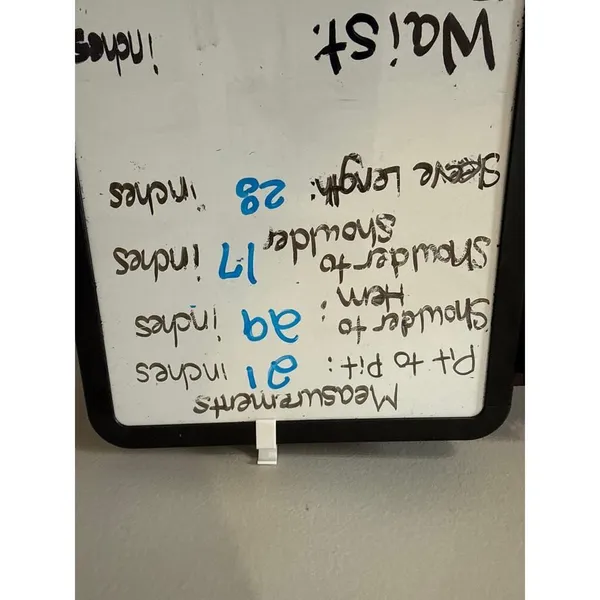 Measurements
Pit to Pit: 21 inches
Shoulder to Hem: 29 inches
Shoulder to Shoulder 17 inches
Sleeve Length: 28 inches
Waist: inches